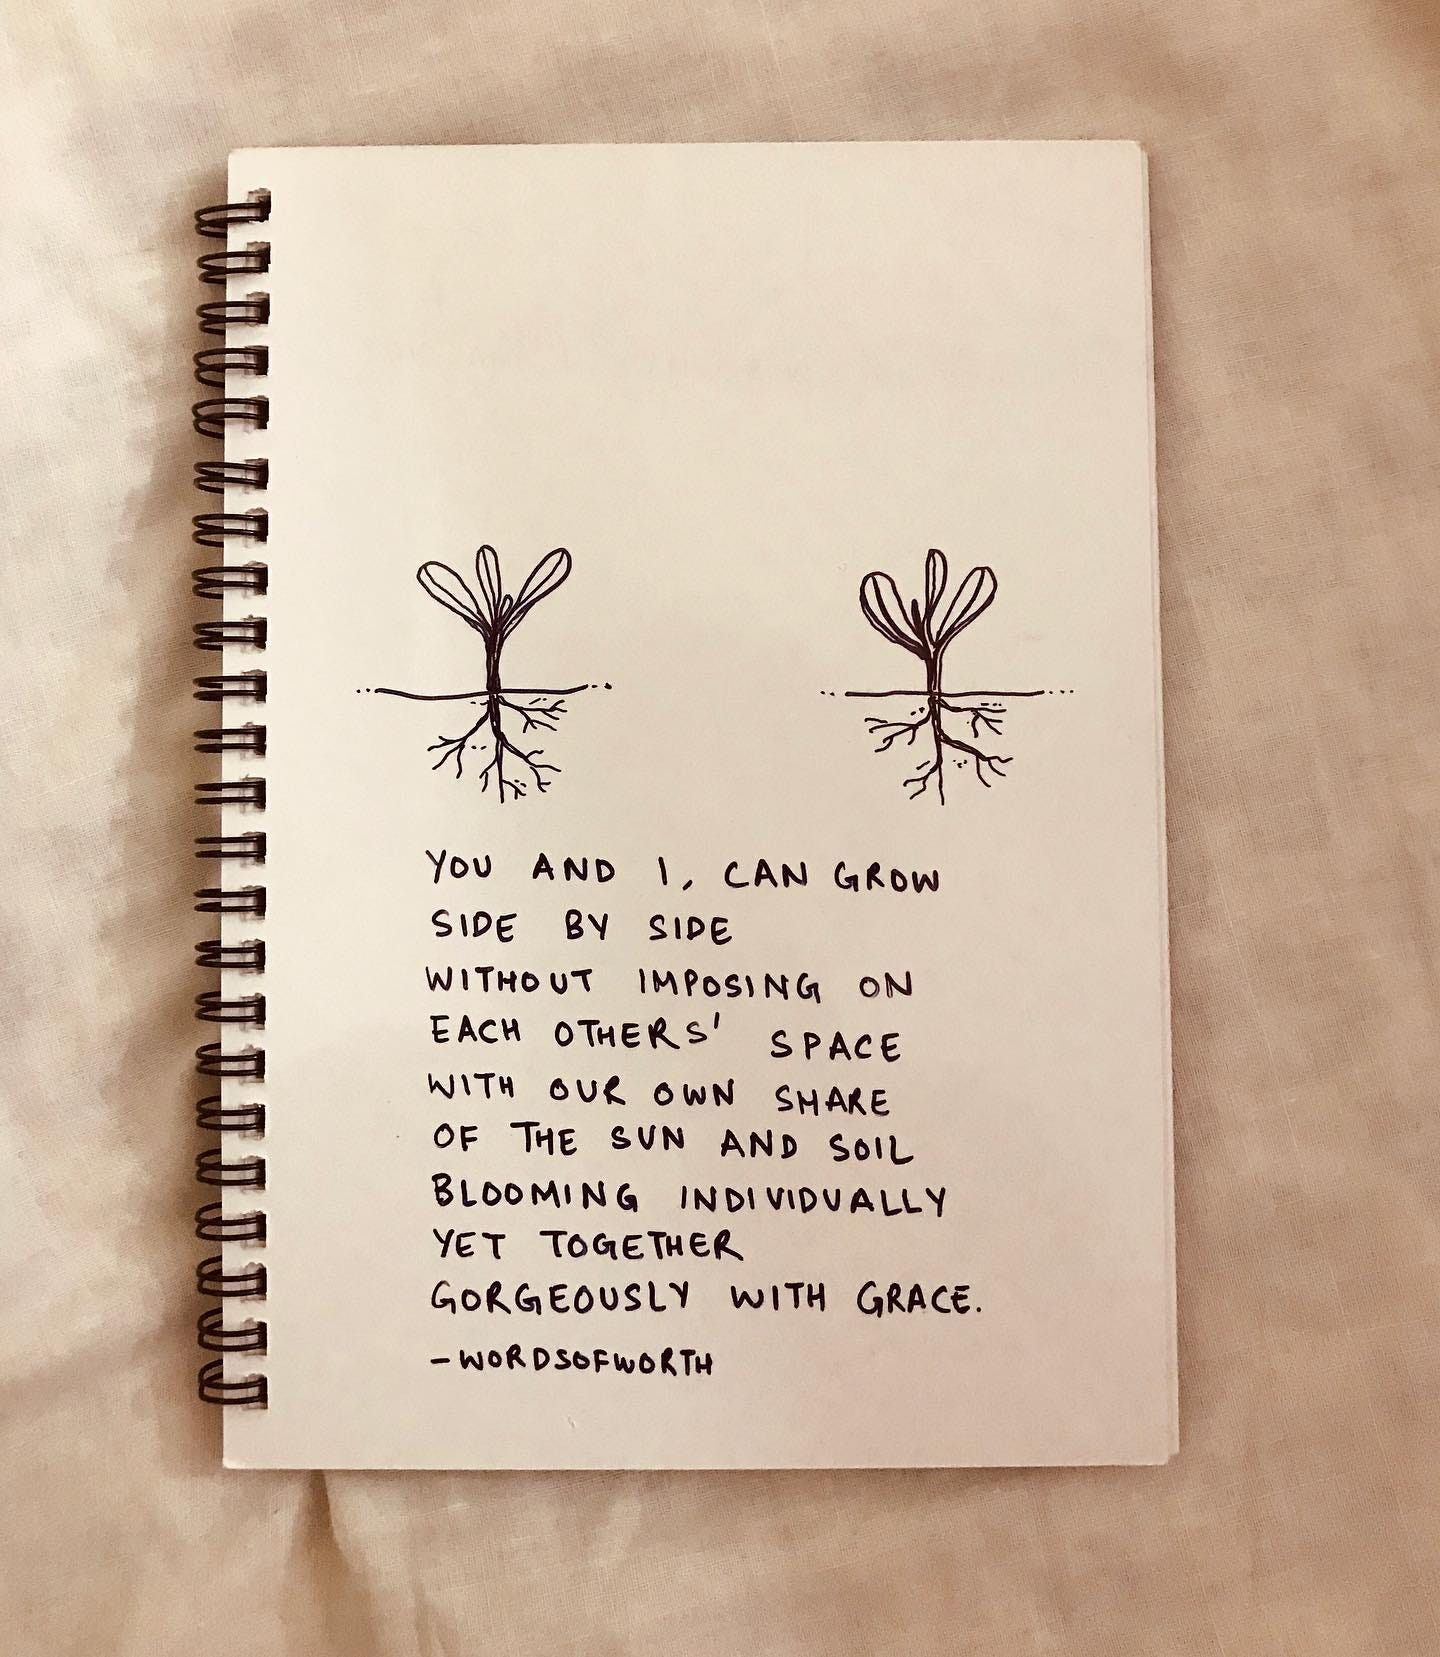 YOU AND I, CAN GROW
SIDE BY SIDE
WITHOUT IMPOSING ON
EACH OTHERS' SPACE
WITH OUR OWN SHARE
OF THE SUN AND SOIL
BLOOMING INDIVIDUALLY
YET TOGETHER
GORGEOUSLY WITH GRACE.
-WORDSOFWORTH